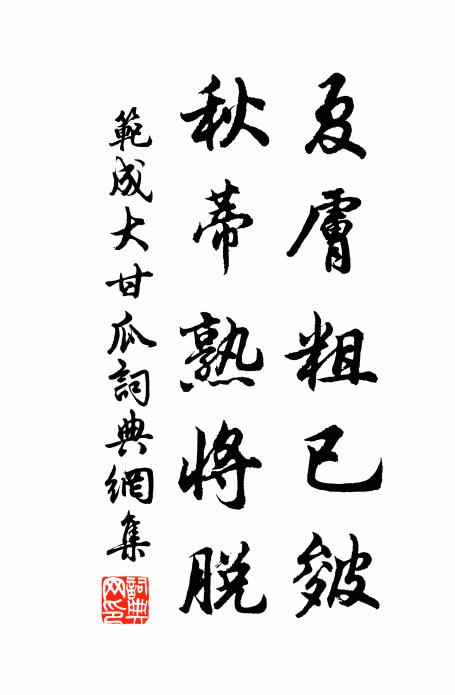 夏膚粗已皴
秋蒂熟將脱
範成大甘瓜詞典網集
詞典網印